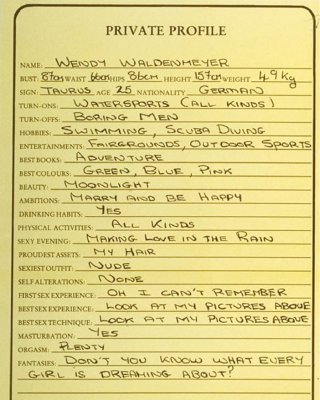 PRIVATE PROFILE
NAME: WENDY WALDENMEYER
BUST: 87cm WAIST 66cm HIPS 86cm HEIGHT 157cm WEIGHT 49kg
SIGN: TAURUS AGE 25 NATIONALITY GERMAN
TURN-ONS: WATERSPORTS (ALL KINDS)
TURN-OFFS: BORING MEN
HOBBIES: SWIMMING, SCUBA DIVING
ENTERTAINMENTS: FAIRGROUNDS, OUTDOOR SPORTS
BEST BOOKS: ADVENTURE
BEST COLOURS: GREEN, BLUE, PINK
BEAUTY: MOONLIGHT
AMBITIONS: MARRY AND BE HAPPY
DRINKING HABITS: YES
PHYSICAL ACTIVITIES: ALL KINDS
SEXY EVENING: MAKING LOVE IN THE RAIN
PROUDEST ASSETS: MY HAIR
SEXIEST OUTFIT: NUDE
SELF ALTERATIONS: NONE
FIRST SEX EXPERIENCE: OH I CAN'T REMEMBER
BEST SEX EXPERIENCE: LOOK AT MY PICTURES ABOVE
BEST SEX TECHNIQUE: LOOK AT MY PICTURES ABOVE
MASTURBATION: YES
ORGASM: PLENTY
FANTASIES: DON'T YOU KNOW WHAT EVERY
GIRL IS DREAMING ABOUT?